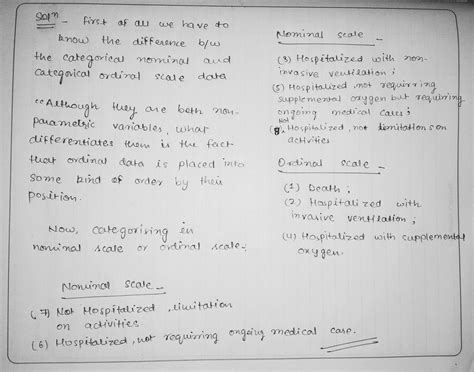 Solⁿ - First of all we have to
know the difference b/w
the categorical nominal and
categorical ordinal scale data
"Although they are both non-
parametric variables, what
differentiates them is the fact
that ordinal data is placed into
some kind of order by their
position.
Now, categoriring in
nominal scale or ordinal scale,
Nominal Scale -
(7) Not Hospitalized, limitation
on activities.
(6) Hospitalized, not requirring ongoing medical case.
Nominal scale -
(3) Hospitalized with non-
invasive ventilation;
(5) Hospitalized, not requirring
supplemental oxygen but requiring
ongoing medical cases;
(8) Not Hospitalized, not limitations on
activities
Ordinal scale -
(1) Death;
(2) Hospitalized with
invasive ventilation;
(4) Hospitalized with supplemental
oxygen.